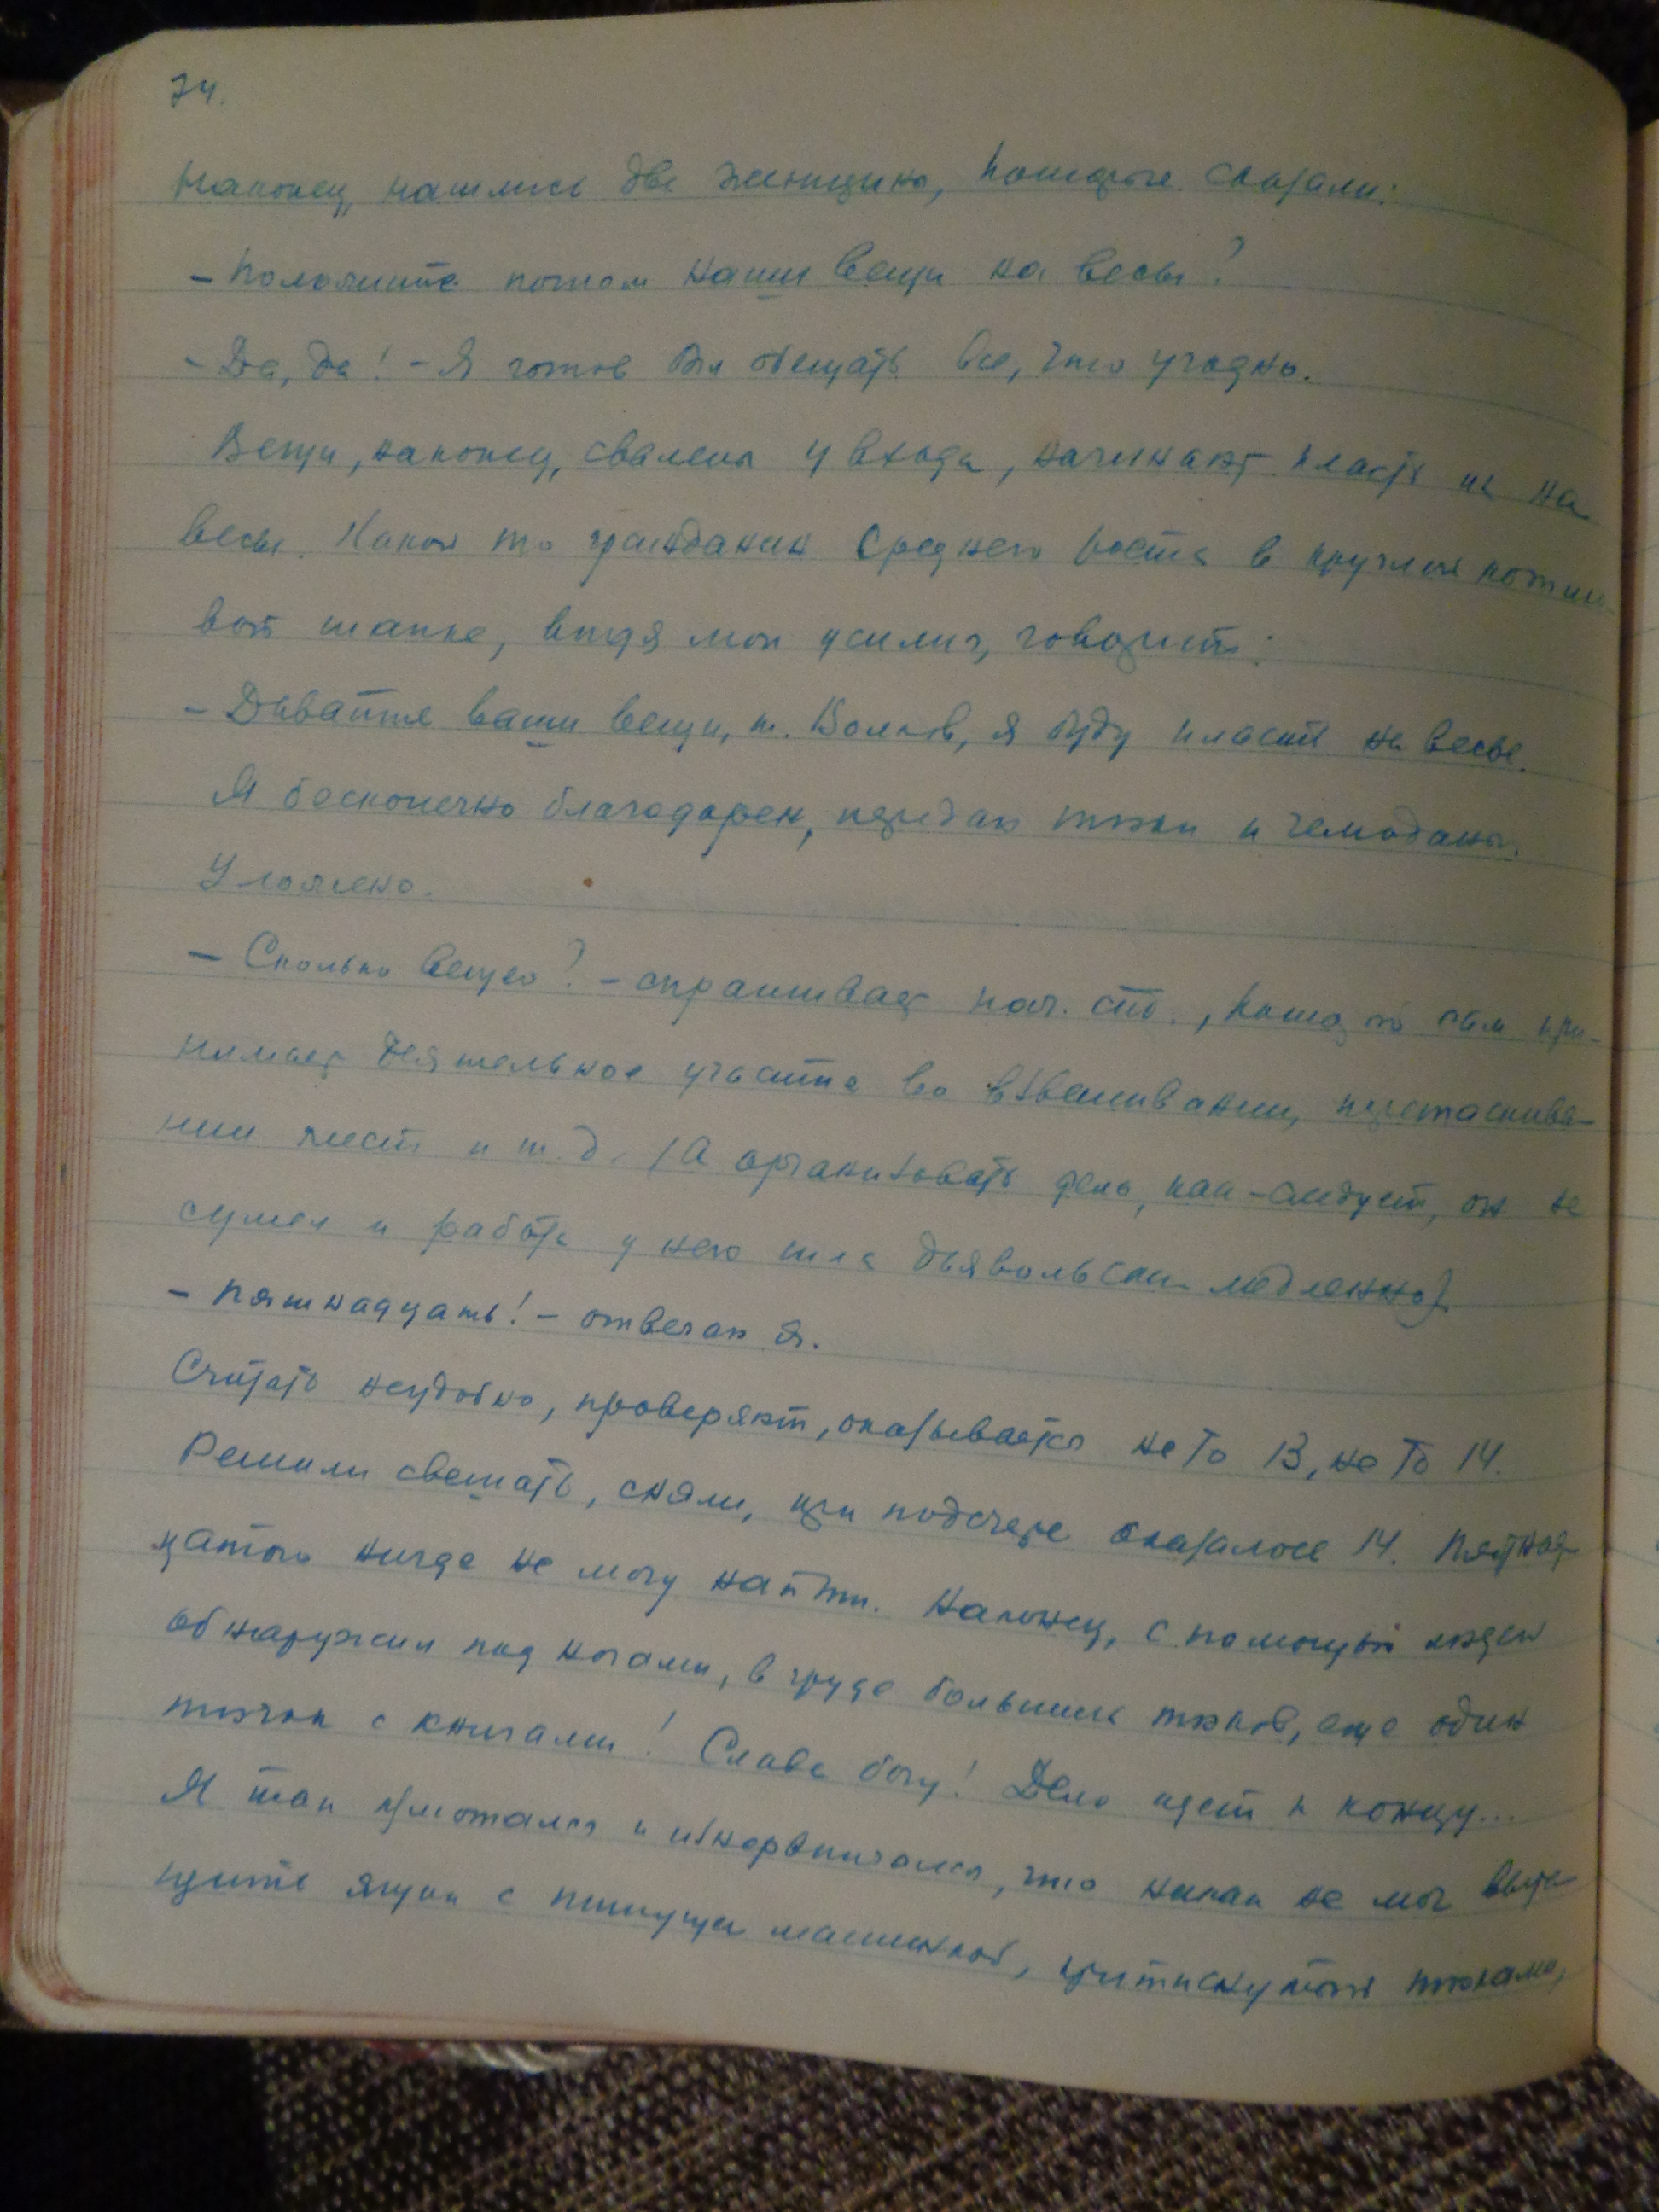 74.
Наконец, нашлись две женщины, которые сказали:
– Положите потом наши вещи на весы?
– Да, да! – Я готов был обещать все, что угодно.
Вещи, наконец, свалены у входа, начинают класть их на
весы. Какой то гражданин среднего роста в круглой котико-
вой шапке, видя мои усилия, говорит:
– Давайте ваши вещи, т. Волков, я буду класть на весы.
Я бесконечно благодарен, передаю тюки и чемоданы.
Уложено.
– Сколько вещей? – спрашивает нач. ст., который сам при-
нимает деятельное участие во взвешивании, перетаскива-
нии мест и т.д. (А организовать дело, как-следует, он не
сумел и работа у него шла дьявольски медленно).
– Пятнадцать! – отвечаю я.
Считать неудобно, проверяют, оказывается не то 13, не то 14.
Решили свешать, сняли, при подсчете оказалось 14. Пятнад-
цатого нигде не могу найти. Наконец, с помощью людей
обнаружил под ногами, в груде больших тюков, еще один
тючок с книгами! Слава богу! Дело идет к концу...
Я так измотался и изнервничался, что никак не мог выта-
щить ящик с пишущей машинкой, притиснутый тюками,